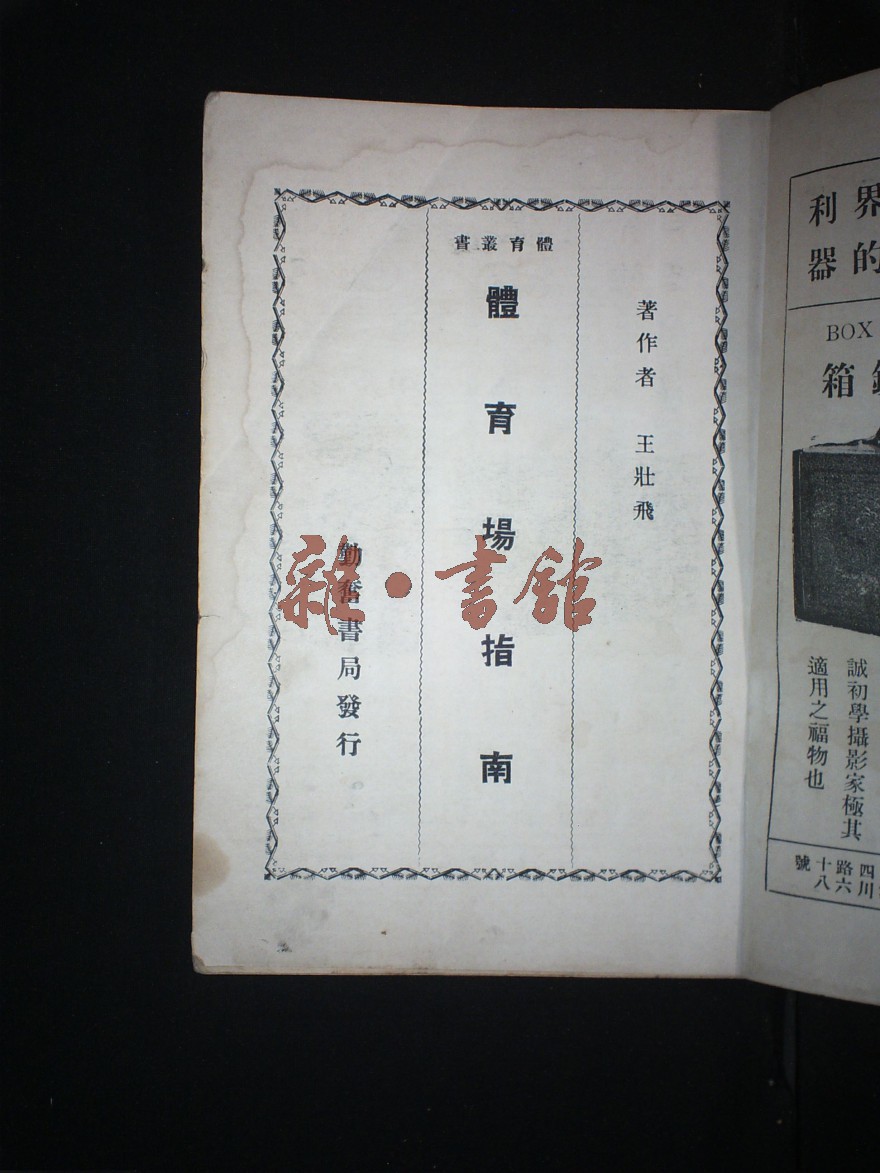 體育叢書
著作者　王壯飛
體育場指南
勤奮書局發行
雜·書館
界
利器的
BOX
箱
誠初學攝影家極其
適用之福物也
四川
路六
十八
號